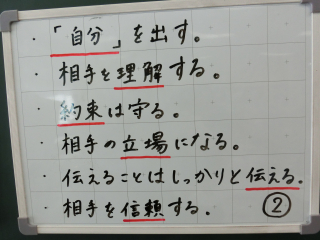 ・「自分」を出す。
・相手を理解する。
・約束は守る。
・相手の立場になる。
・伝えることはしっかりと伝える。
・相手を信頼する。
②